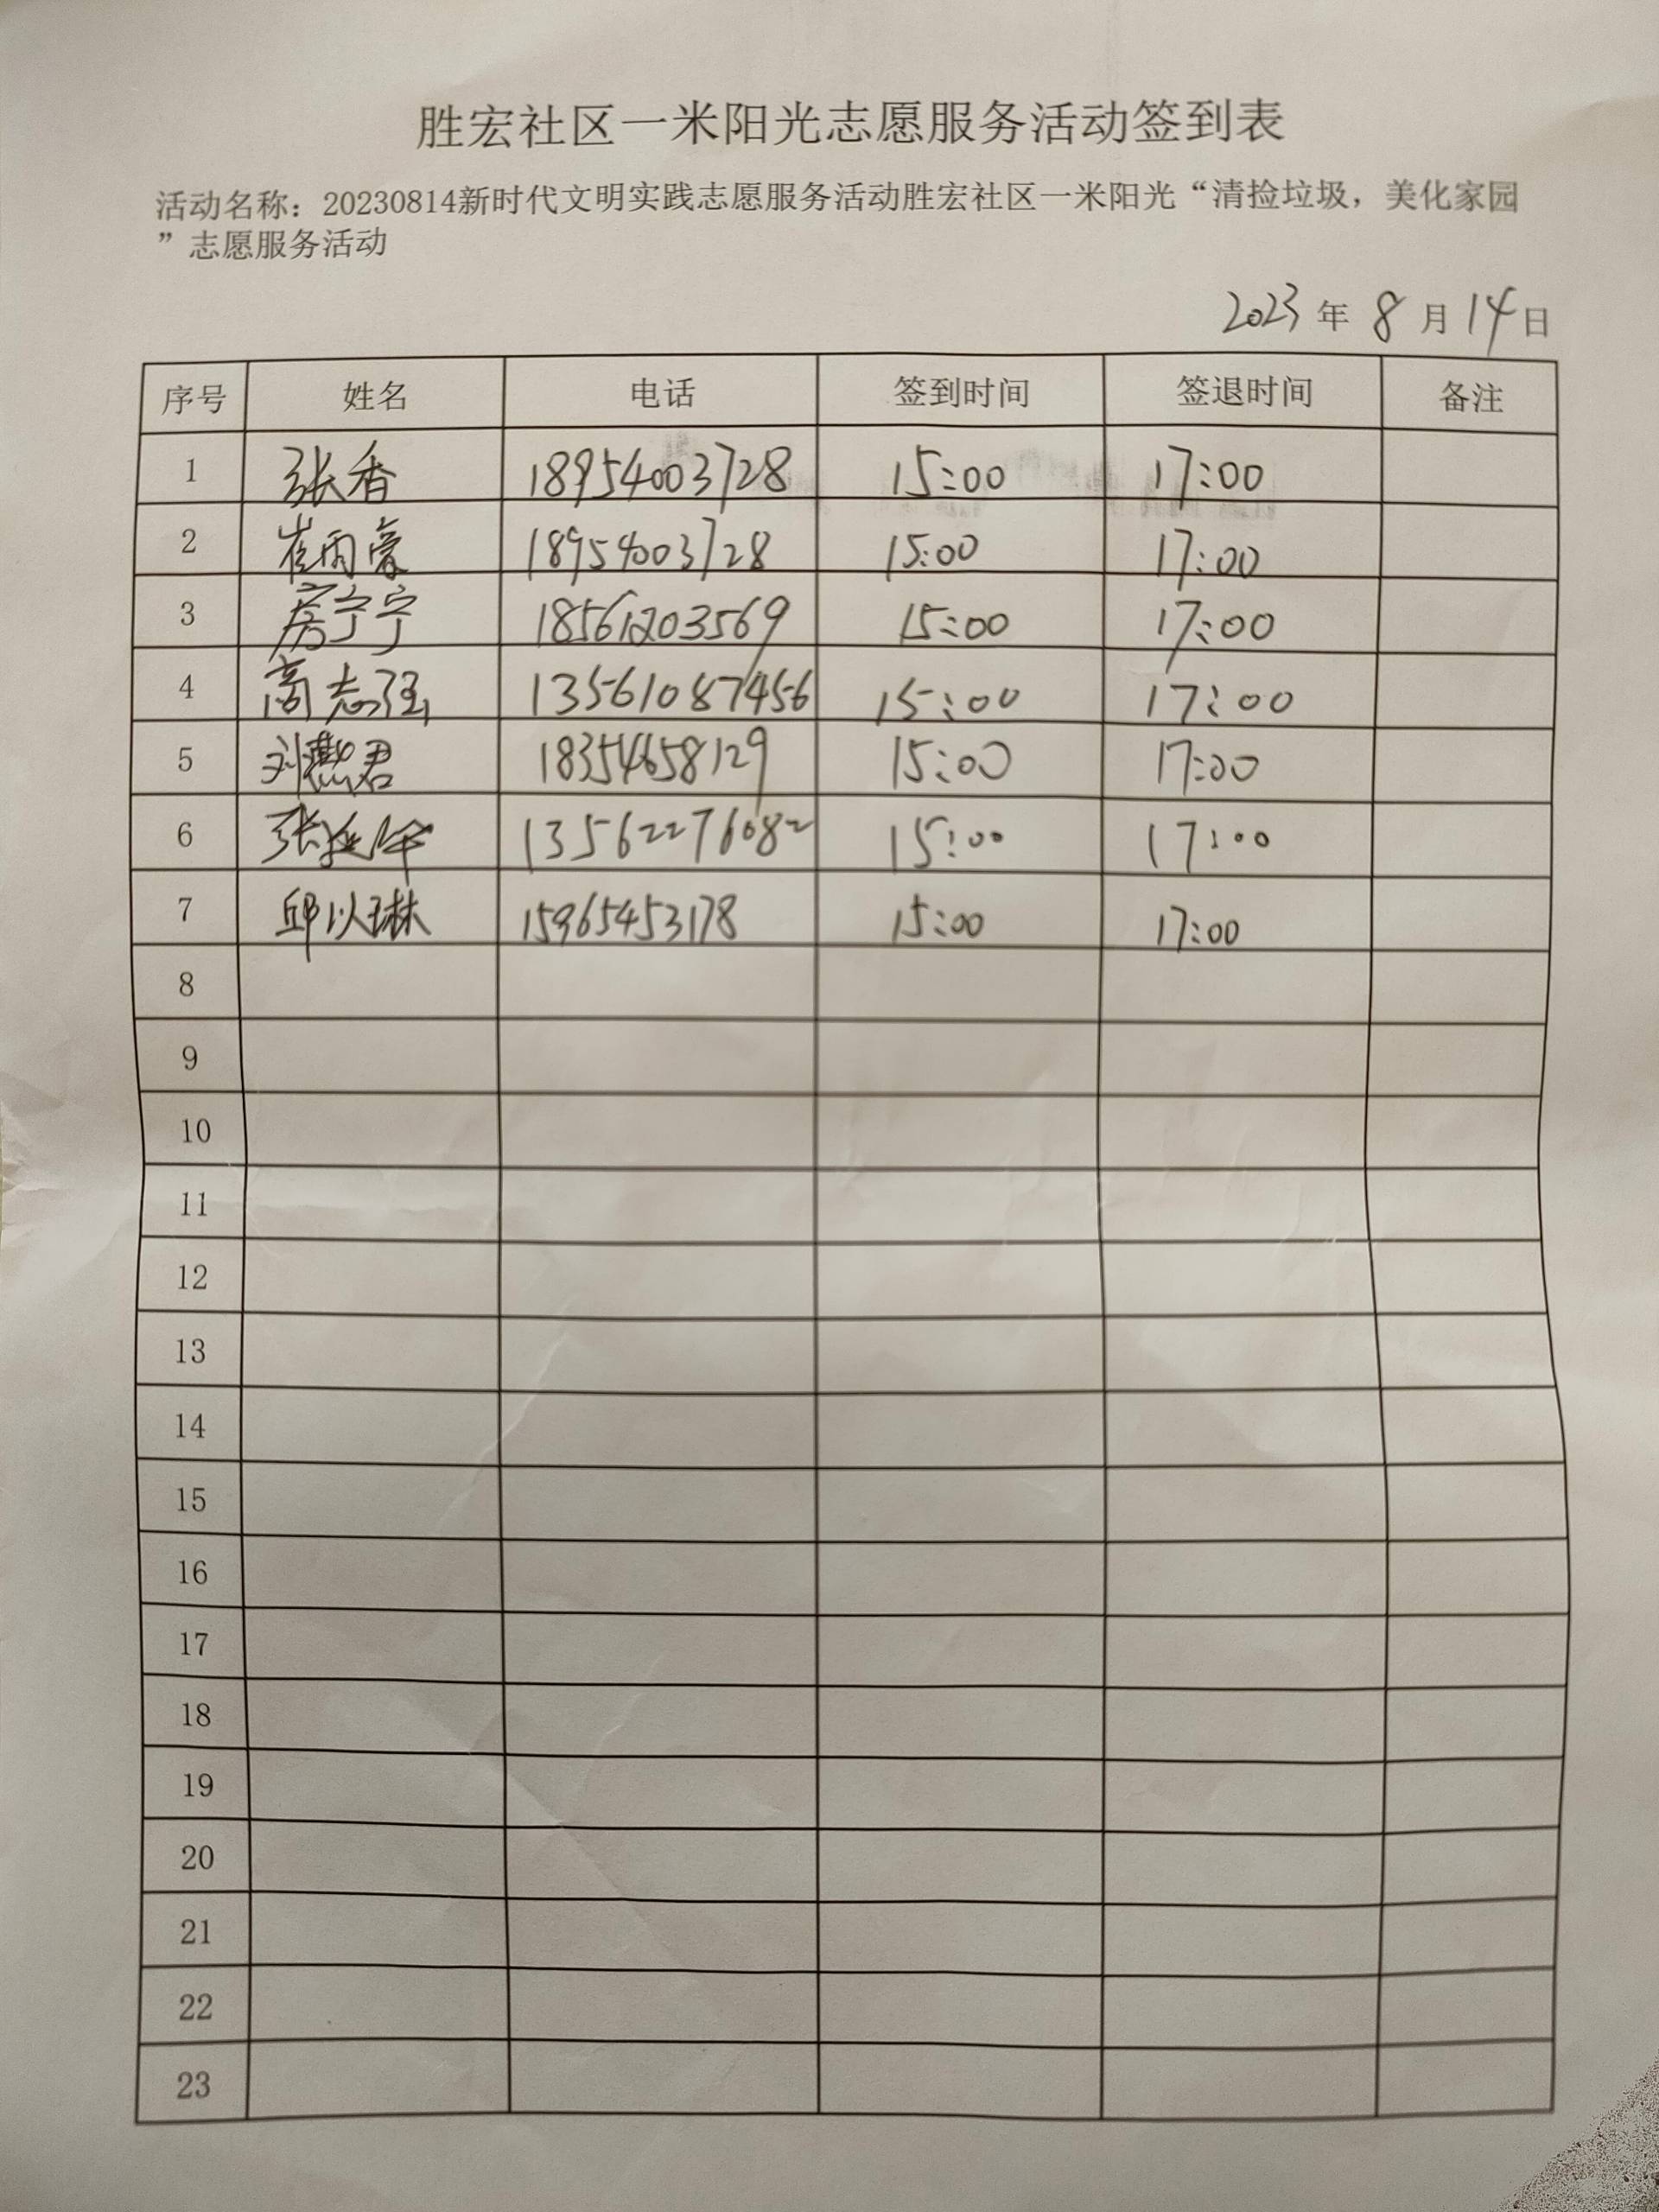 胜宏社区一米阳光志愿服务活动签到表
活动名称：20230814新时代文明实践志愿服务活动胜宏社区一米阳光“清捡垃圾，美化家园
”志愿服务活动
2023 年 8 月 14 日
序号 姓名 电话 签到时间 签退时间 备注
1 张香 18954003728 15:00 17:00
2 崔雨 18954003728 15:00 17:00
3 房宁宁 18561203569 15:00 17:00
4 高志强 13561087456 15:00 17:00
5 刘燕君 18354658129 15:00 17:00
6 张延 13562276082 15:00 17:00
7 邱以琳 15965453178 15:00 17:00
8
9
10
11
12
13
14
15
16
17
18
19
20
21
22
23